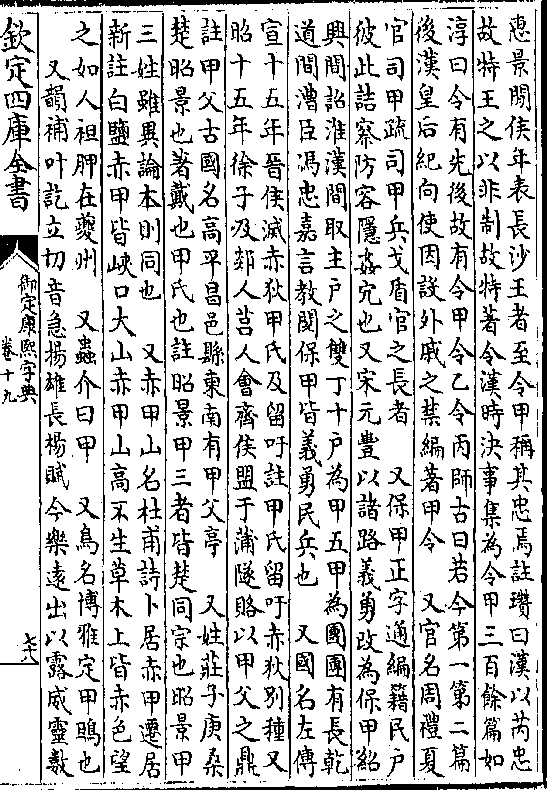 惠景閒侯年表長沙王者至令甲稱其忠焉註瓚曰漢以芮忠
故特王之以非制故特著令漢時決事集為令甲三百餘篇如
淳曰令有先後故有令甲令乙令丙師古曰若今第一第二篇
後漢皇后紀向使因設外戚之禁編著甲令　又官名周禮夏
官司甲疏司甲兵戈盾官之長者　又保甲正字通編籍民戶
彼此詰察防容隱姦宄也又宋元豐以諸路義勇改為保甲紹
興間詔淮漢間取主戶之雙丁十戶為甲五甲為團團有長乾
道間漕臣馮忠嘉言教閱保甲皆義勇民兵也　又國名左傳
宣十五年晉侯滅赤狄甲氏及留吁註甲氏留吁赤狄別種又
昭十五年徐子及郯人莒人會齊侯盟于蒲隧賂以甲父之鼎
註甲父古國名高平昌邑縣東南有甲父亭　又姓莊子庚桑
楚昭景也著戴也甲氏也註昭景甲三者皆楚同宗也昭景甲
三姓雖異論本則同也　又赤甲山名杜甫詩卜居赤甲遷居
新註白鹽赤甲皆峽口大山赤甲山高不生草木上皆赤色望
之如人袒胛在夔州　又蟲介曰甲　又鳥名博雅定甲鴠也
又韻補叶訖立切音急揚雄長楊賦今樂遠出以露威靈數
欽定四庫全書
御定康熙字典
卷十九
七十八